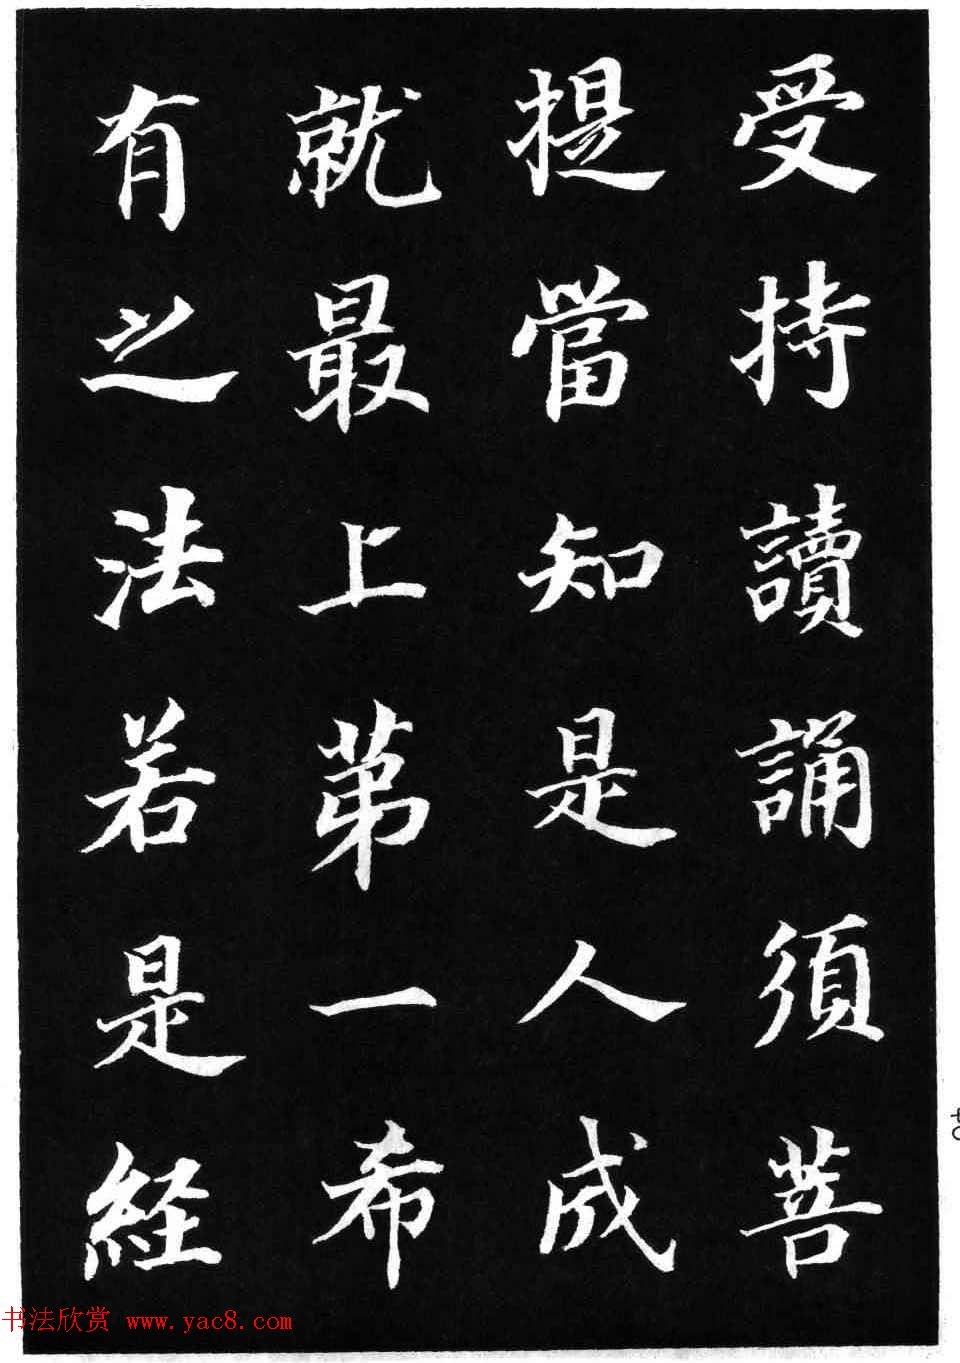 受持讀誦須菩
提當知是人成
就最上苐一希
有之法若是経
40
书法欣赏 www.yac8.com